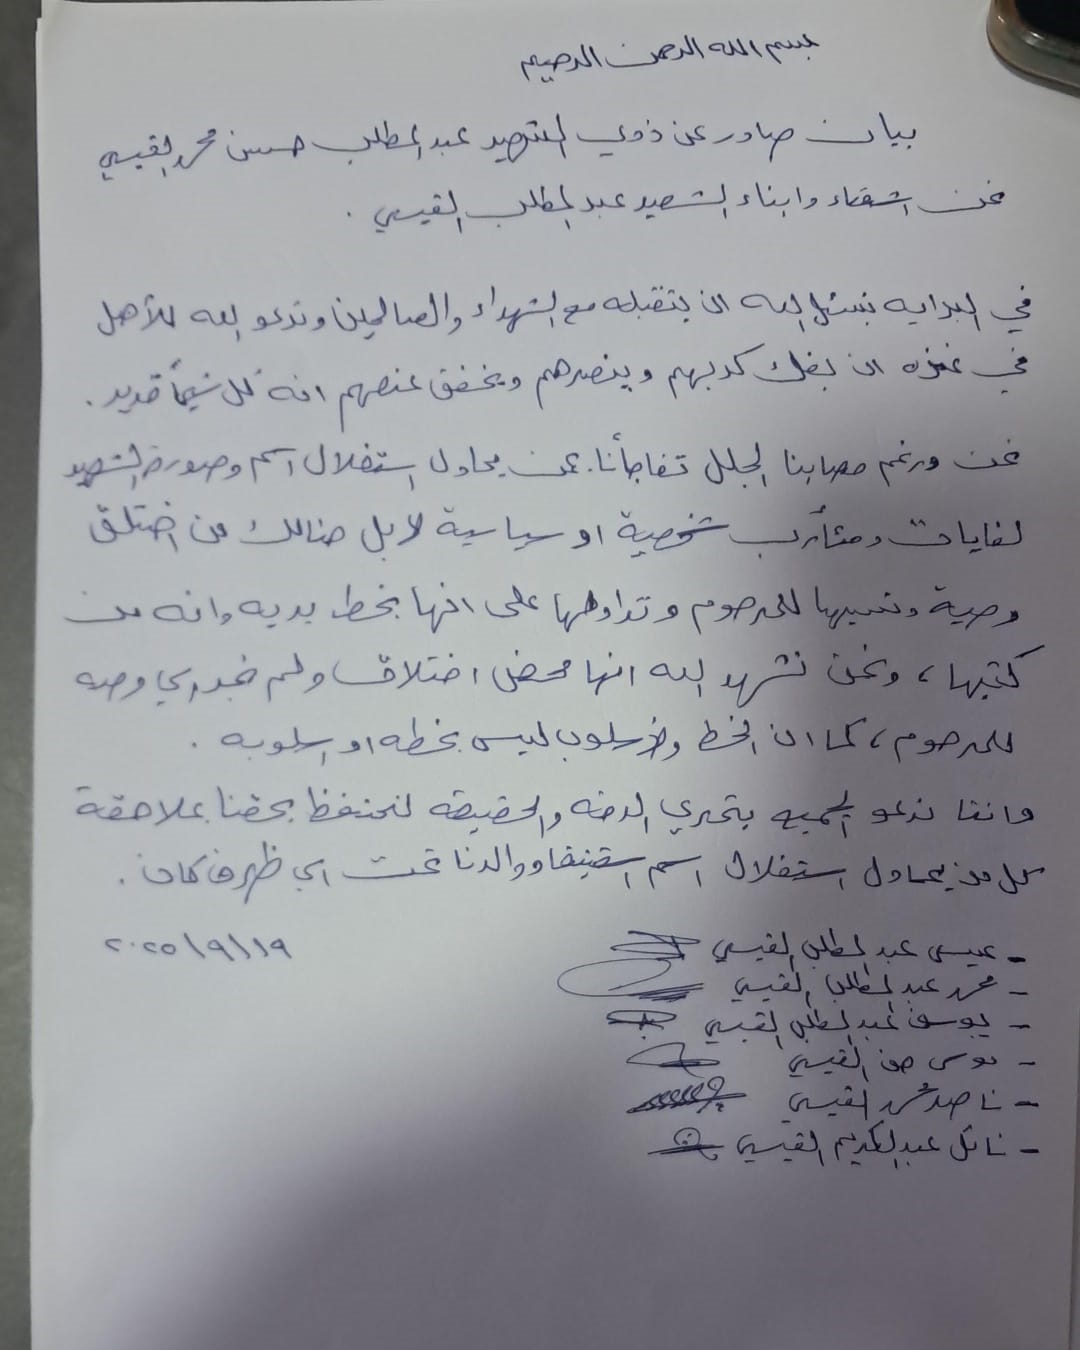 بسم الله الرحمن الرحيم
بيان صادر عن ذوي الشهيد عبد المطلب حسن محمد القيسي
نحن اشقاء وابناء الشهيد عبد المطلب القيسي .
في البدايه نسئل الله ان يتقبله مع الشهداء والصالحين وندعو الله للأهل
في غزه ان يفك كربهم وينصرهم ويخفف عنهم انه كل شيئاً قدير .
نحن ورغم مصابنا الجلل تفاجأنا بمن يحاول استغلال اسم وصورة الشهيد
لغايات ومئأرب شخصية او سياسية لا بل هنالك من اختلق
وصية ونسبها للمرحوم وتداولها على انها بخط يديه وانه من
كتبها ، ونحن نشهد الله انها محض اختلاق ولم نجد اي وصيه
للمرحوم ، كما ان الخط والأسلوب ليس بخطه او اسلوبه .
واننا ندعو الجميع بتحري الدقه والحقيقه لنحتفظ بحقنا بملاحقة
كل من يحاول استغلال اسم شقيقنا ووالدنا تحت اي ظرف كان .
٢٠٢٥/٩/١٩
- عيسى عبد المطلب القيسي
- محمد عبد المطلب القيسي
- يوسف عبد المطلب القيسي
- موسى القيسي
- ناصر محمد القيسي
- نائل عبد الكريم القيسي